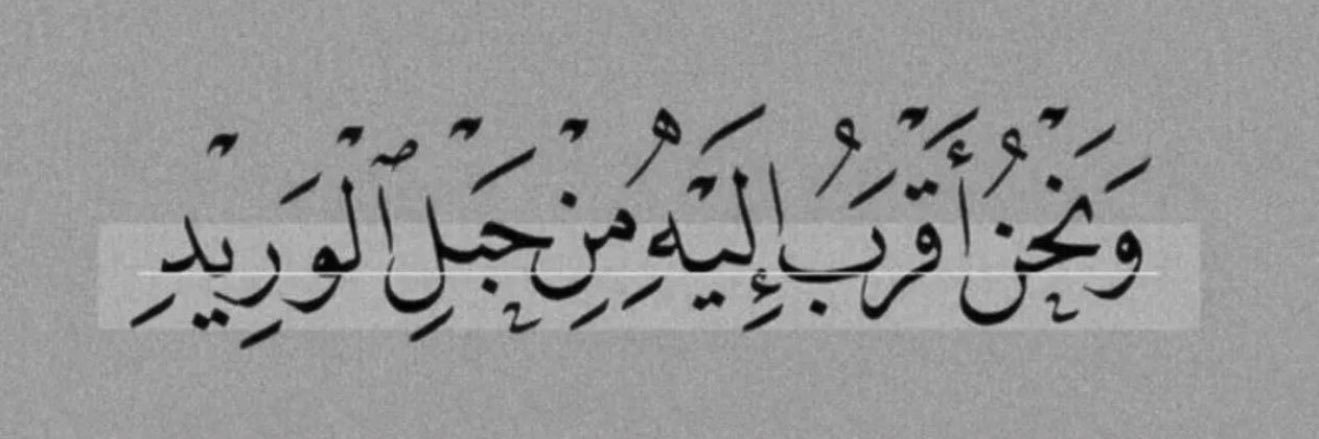 وَنَحْنُ أَقْرَبُ إِلَيْهِ مِنْ حَبْلِ ٱلْوَرِيْدِ